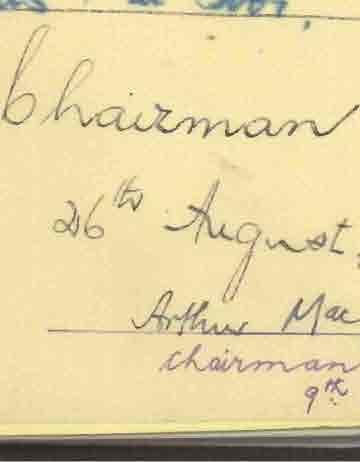 Chairman
26th August
Arthur Mac
Chairman
9th